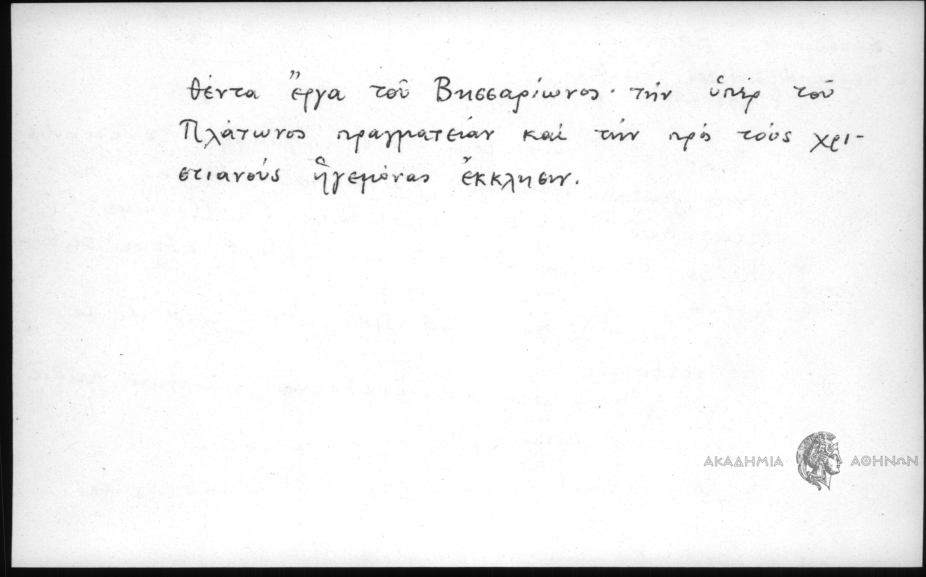 θέντα ἔργα τοῦ Βησσαρίωνος· τὴν ὑπὲρ τοῦ
Πλάτωνος πραγματείαν καὶ τὴν πρὸς τοὺς χρι-
στιανοὺς ἡγεμόνας ἔκκλησιν.
ΑΚΑΔΗΜΙΑ ΑΘΗΝΩΝ